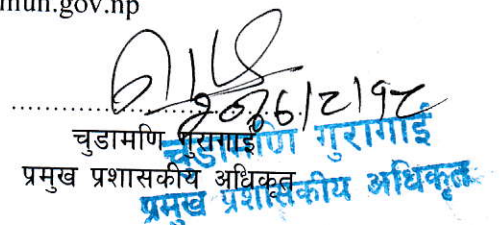 mun.gov.np
चुडामणि गुरागाई
प्रमुख प्रशासकीय अधिकृत
चुडामणि गुरागाई
प्रमुख प्रशासकीय अधिकृत